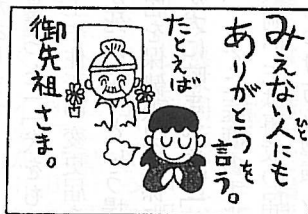 みえない人にも
ありがとうを
言う。
たとえば
御先祖さま。